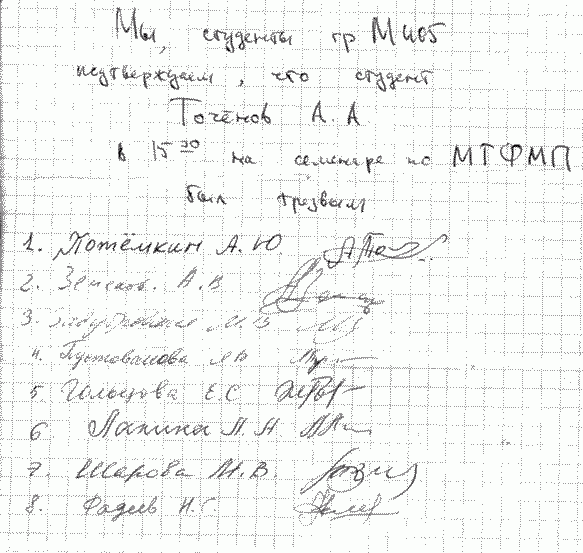 Мы, студенты гр М405
подтверждаем, что студент
Точёнов А. А
в 15 30 на семинаре по МТФМП
был трезвым
1. Потёмкин А. Ю.
2. А. В
3. М. В
4. Пустовалова
5. Гольцова Е. С
6 Лапина Л. А.
7. Шарова М. В.
8. Фадеев Н. С.